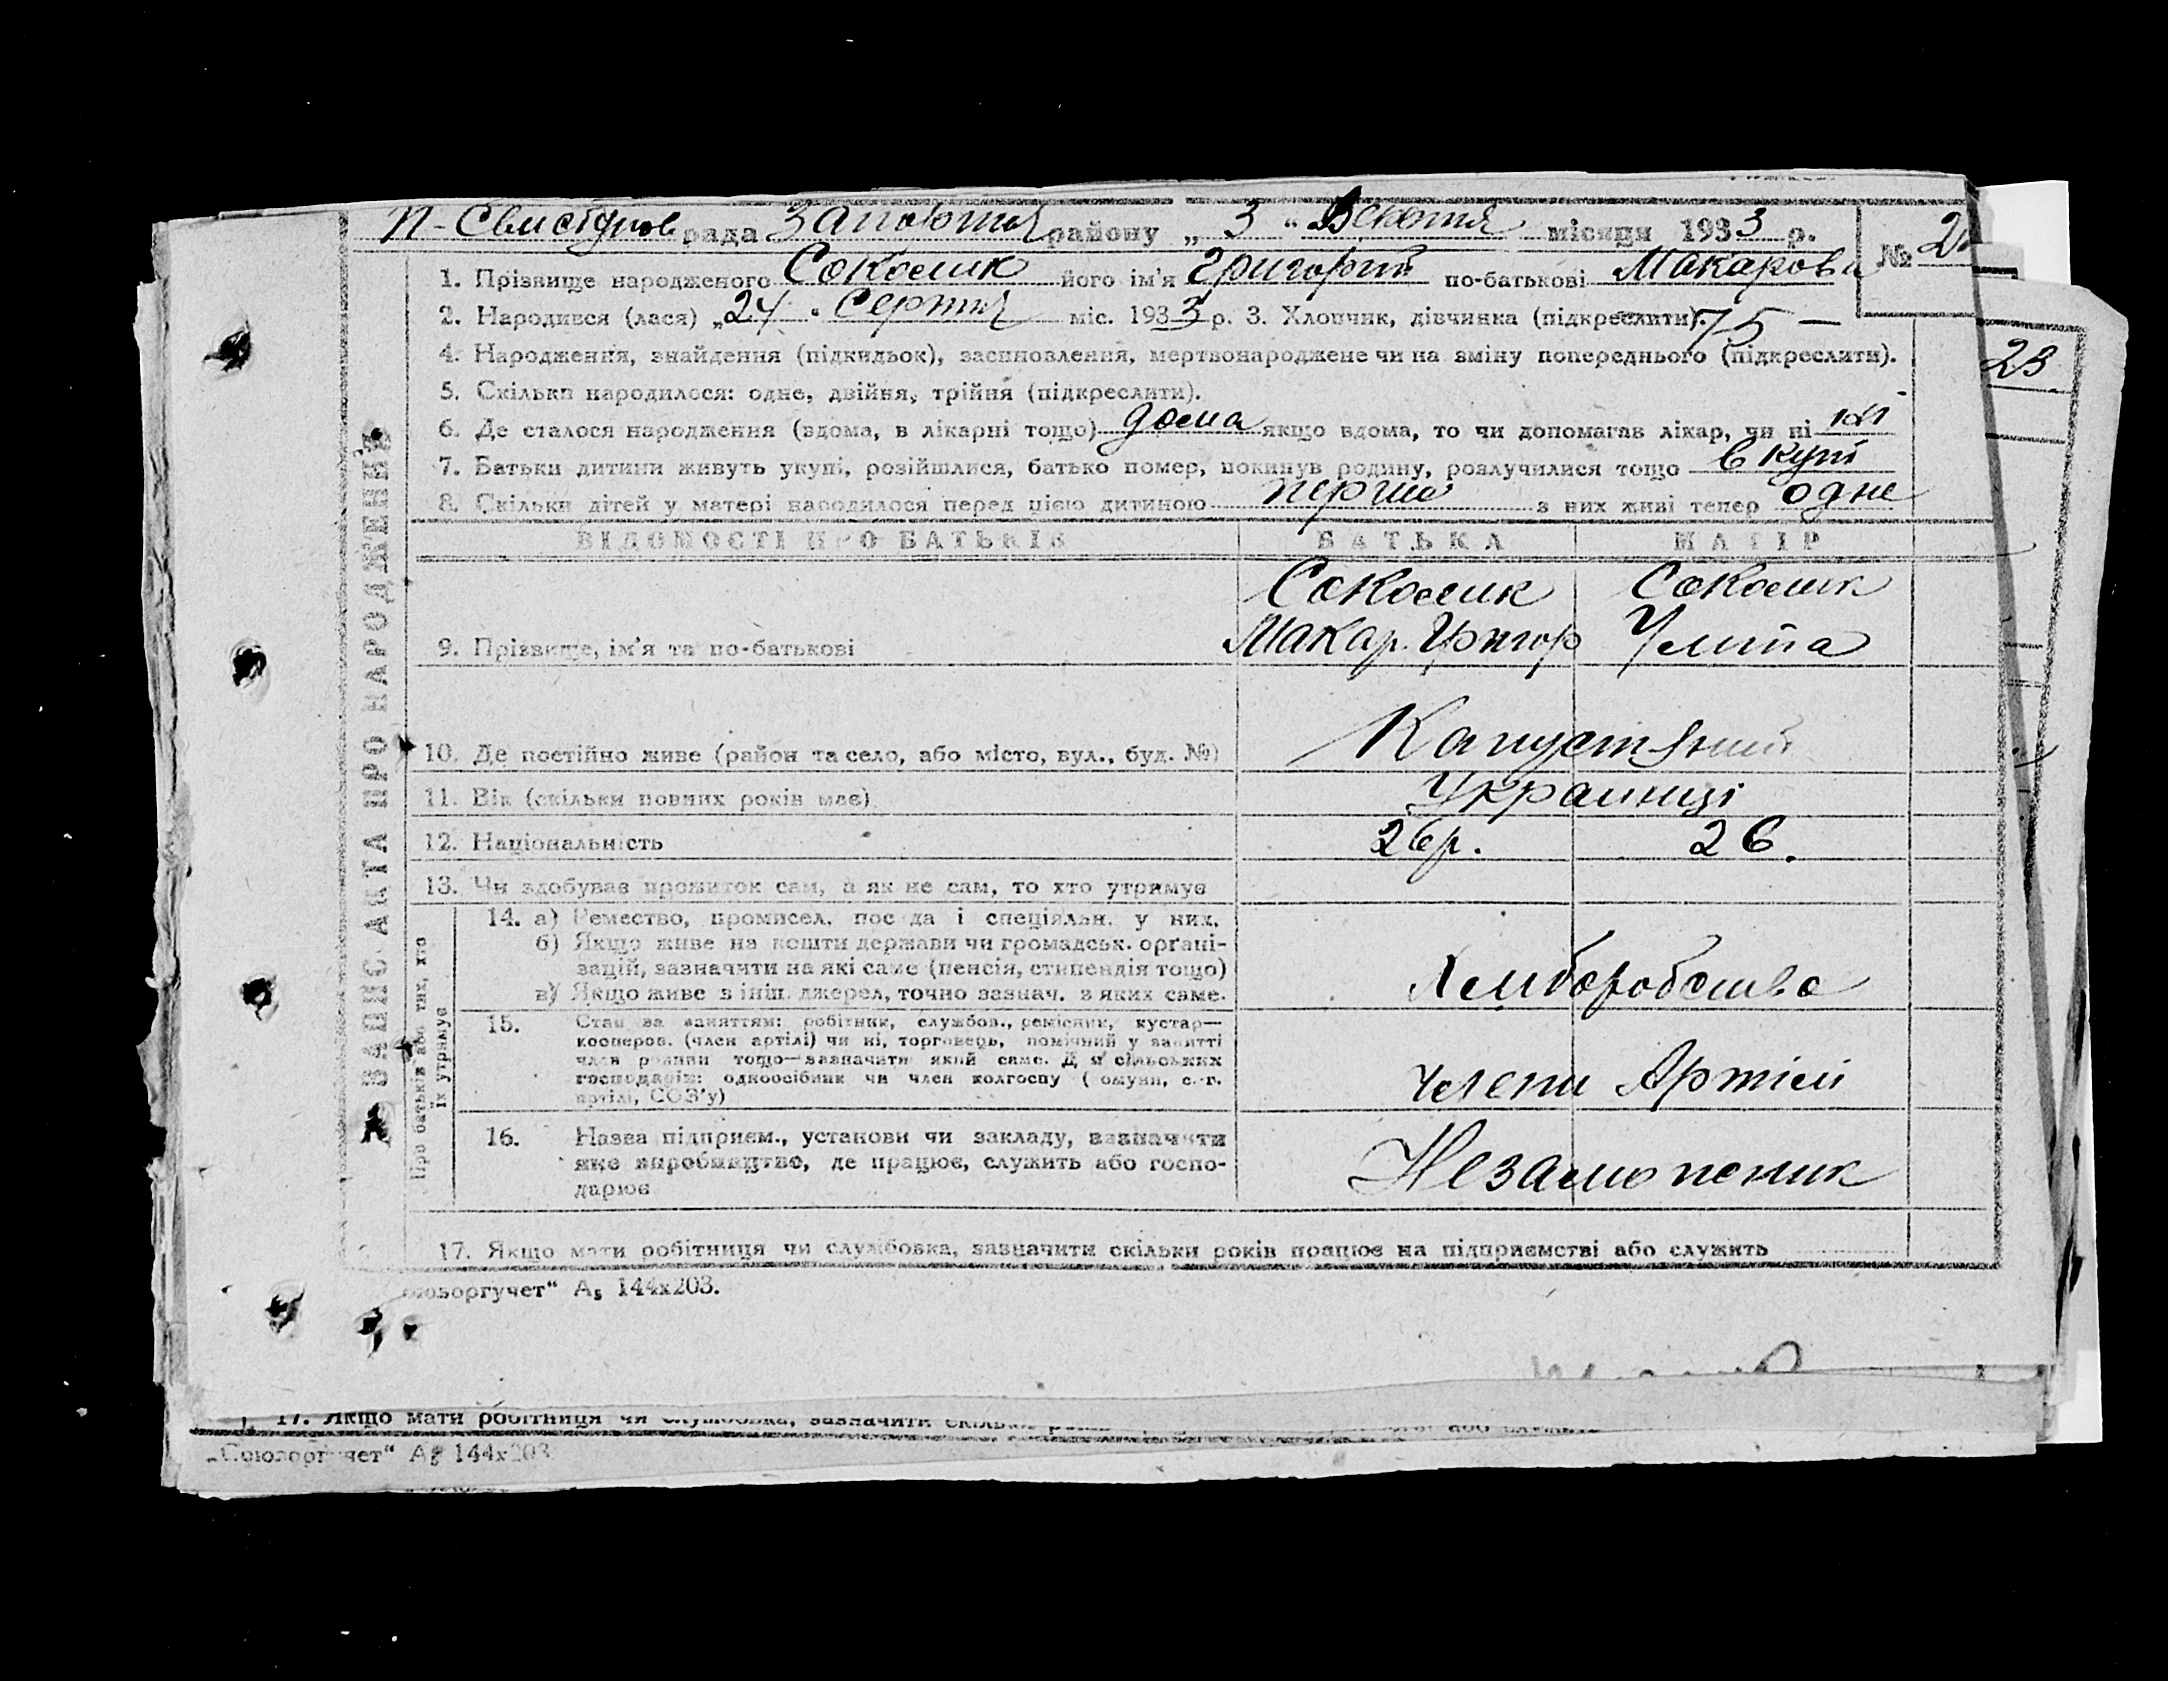 П-Свистунов рада Запоріжжя району „ 3 “ Жовтня місяця 1933 р. № 2
1. Прізвище народженого Соколик його ім'я Григорій по-батькові Макаров
2. Народився (лася) „24“ Серпня міс. 1933 р. 3. Хлопчик, дівчинка (підкреслити). 75 —
4. Народження, знайдення (підкидьок), засиновлення, мертвонароджене чи на зміну попереднього (підкреслити).
23
5. Скільки народилося: одне, двійня, трійня (підкреслити).
6. Де сталося народження (вдома, в лікарні тощо) дома якщо вдома, то чи допомагав лікар, чи ні ні
7. Батьки дитини живуть укупі, розійшлися, батько помер, покинув родину, розлучилися тощо вкупі
8. Скільки дітей у матері народилося перед цією дитиною перше з них живі тепер одне
ЗАПИС АКТА ПРО НАРОДЖЕННЯ
ВІДОМОСТІ ПРО БАТЬКІВ БАТЬКА МАТІР
Соколик Соколик
9. Прізвище, ім'я та по-батькові Макар. Григор Уліта
10. Де постійно живе (район та село, або місто, вул., буд. №) Капустяний
11. Вік (скільки повних років має) Українці
12. Національність 26р. 26.
13. Чи здобуває прожиток сам, а як не сам, то хто утримує
Про батьків або тих, хто їх утримує
14. а) Ремество, промисел, посада і спеціяльн. у них.
б) Якщо живе на кошти держави чи громадськ. органі-
зацій, зазначити на які саме (пенсія, стипендія тощо)
в) Якщо живе з інш. джерел, точно зазнач. з яких саме. Хліборобство
15. Стан за заняттям: робітник, службов., ремісник, кустар—
кооперов. (член артілі) чи ні, торговець, помічний у занятті
член родини тощо—зазначити який саме. Для сільських
господарів: одноосібник чи член колгоспу (комуни, с.-г.
артілі, СОЗ'у) члени Артілі
16. Назва підприєм., установи чи закладу, зазначити
яке виробництво, де працює, служить або госпо-
дарює Незаможник
17. Якщо мати робітниця чи службовка, зазначити скільки років працює на підприємстві або служить
оюзоргучет“ А₅ 144х203.
17. Якщо мати робітниця чи службовка, зазначити скільки
„Союзоргучет“ А₅ 144х203